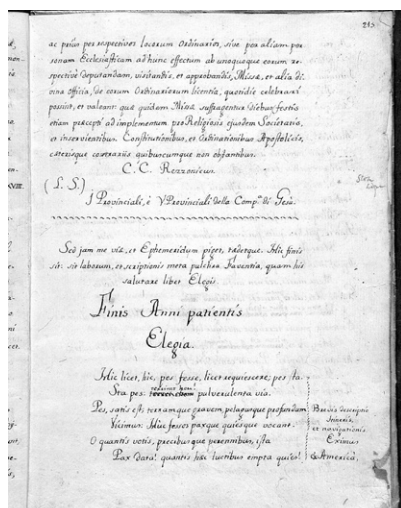 213
ac prius per respectivos locorum Ordinarios, sive per aliam per-
sonam Ecclesiasticam ad hunc effectum ab unoquoque eorum re-
spectivè deputandam, visitandis, et approbandis, Missæ, et alia di-
vina officia, de eorum Ordinariorum licentia, quotidie celebrari
possint, et valeant: quæ quidem Missæ suffragentur diebus festis
etiam præcepti ad implementum pro Religiosis ejusdem Societatis,
et inservientibus. Constitutionibus, et Ordinationibus Apostolicis,
cæterisque contrariis quibuscumque non obstantibus.
C. C. Rezzonicus.
( L. S.)
I Provinciali, è V Provinciali della Comp.ª di Gesù.
Sed jam me viæ, et Ephemeridum piget, tædetque. Hic finis
sit: sit laborum, et scriptionis meta pulchra Faventia, quam his
salutare libet Elegis.
Finis Anni patientis
Elegia
Hic licet, hic, pes fesse, licet requiescere; pes sta.
Sta pes: pulverulenta via.
Pes, satis est; terramque gravem, pelagusque profundum
Vicimus: Hic fessos paxque quiesque vocant.
O quantis votis, precibusque perennibus, ista
Pax data! quantis hæc luctibus empta quies!
Brevis descriptio
itineris,
et navigationis
Eximus
America.